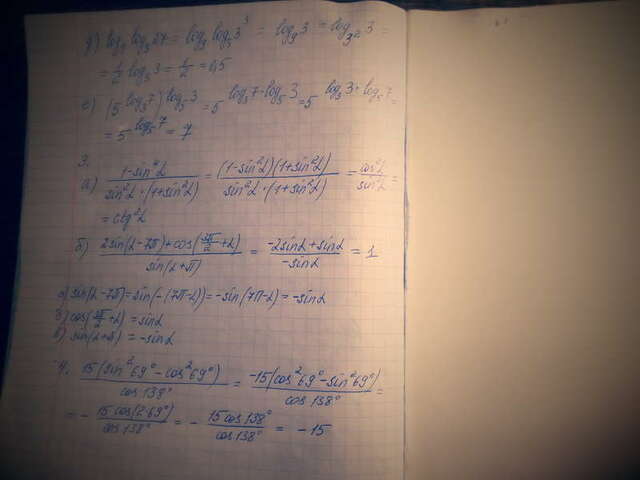 д) log₉ log₃ 27 = log₉ log₃ 3³ = log₉ 3 = log₃² 3 =
= 1/2 log₃ 3 = 1/2 = 0,5
е) (5^log₃7)^log₅3 = 5^log₃7·log₅3 = 5^log₃3·log₅7 =
= 5^log₅7 = 7
3.
а) (1-sin⁴α)/(sin²α·(1+sin²α)) = ((1-sin²α)(1+sin²α))/(sin²α·(1+sin²α)) = cos²α/sin²α =
= ctg²α
б) (2sin(α-7π)+cos(3π/2+α))/sin(α+π) = (-2sinα+sinα)/(-sinα) = 1
а) sin(α-7π)=sin(-(7π-α))=-sin(7π-α)=-sinα
б) cos(3π/2+α)=sinα
в) sin(α+π) = -sinα
4. 15(sin²69°-cos²69°)/cos138° = -15(cos²69°-sin²69°)/cos138° =
= - 15cos(2·69°)/cos138° = - 15cos138°/cos138° = -15